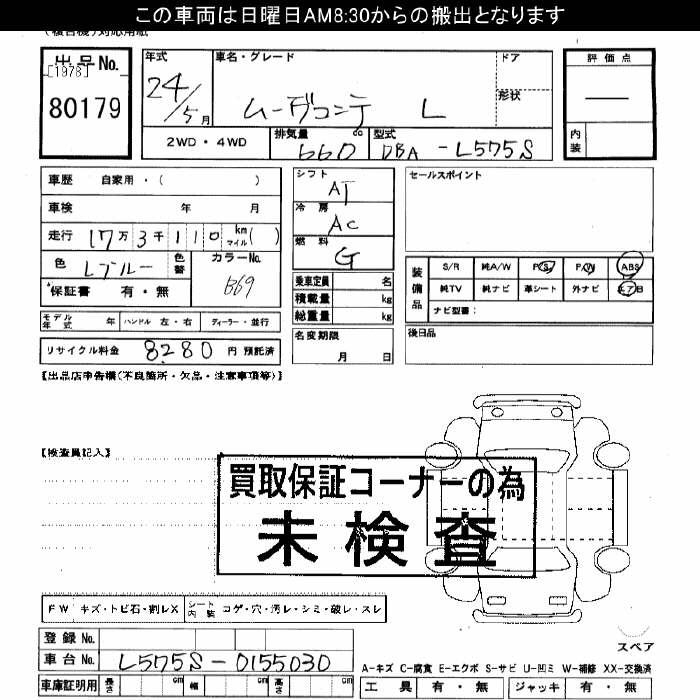 この車両は日曜日AM8:30からの搬出となります
出品No.
[1978]
80179
年式
24/5月
車名・グレード
ムーヴコンテ L
ドア
形状
2WD・4WD
排気量
660
cc
型式
DBA-L575S
評価点
内装
車歴 自家用・( )
車検 年 月
走行 17万3千110 km マイル( )
色 Lブルー
色替
カラーNo.
B69
保証書 有・無
モデル年式 年 ハンドル 左・右 ディーラー・並行
リサイクル料金 8280 円 預託済
シフト
AT
冷房
AC
燃料
G
乗車定員 名
積載量 kg
総重量 kg
名変期限
月 日
セールスポイント
装備品
S/R 純A/W P/S P/W ABS
純TV 純ナビ 革シート 外ナビ エアB
ナビ型番:
後日品
【出品店申告欄(不良箇所・欠品・注意事項等)】
【検査員記入】
買取保証コーナーの為
未検査
FW キズ・トビ石・割レX
シート内装 コゲ・穴・汚レ・シミ・破レ・スレ
スペア
登録No.
車台No. L575S-0155030
車庫証明用 長さ cm 幅 cm 高さ cm
A-キズ C-腐食 E-エクボ S-サビ U-凹ミ W-補修 XX-交換済
工具 有・無 ジャッキ 有・無